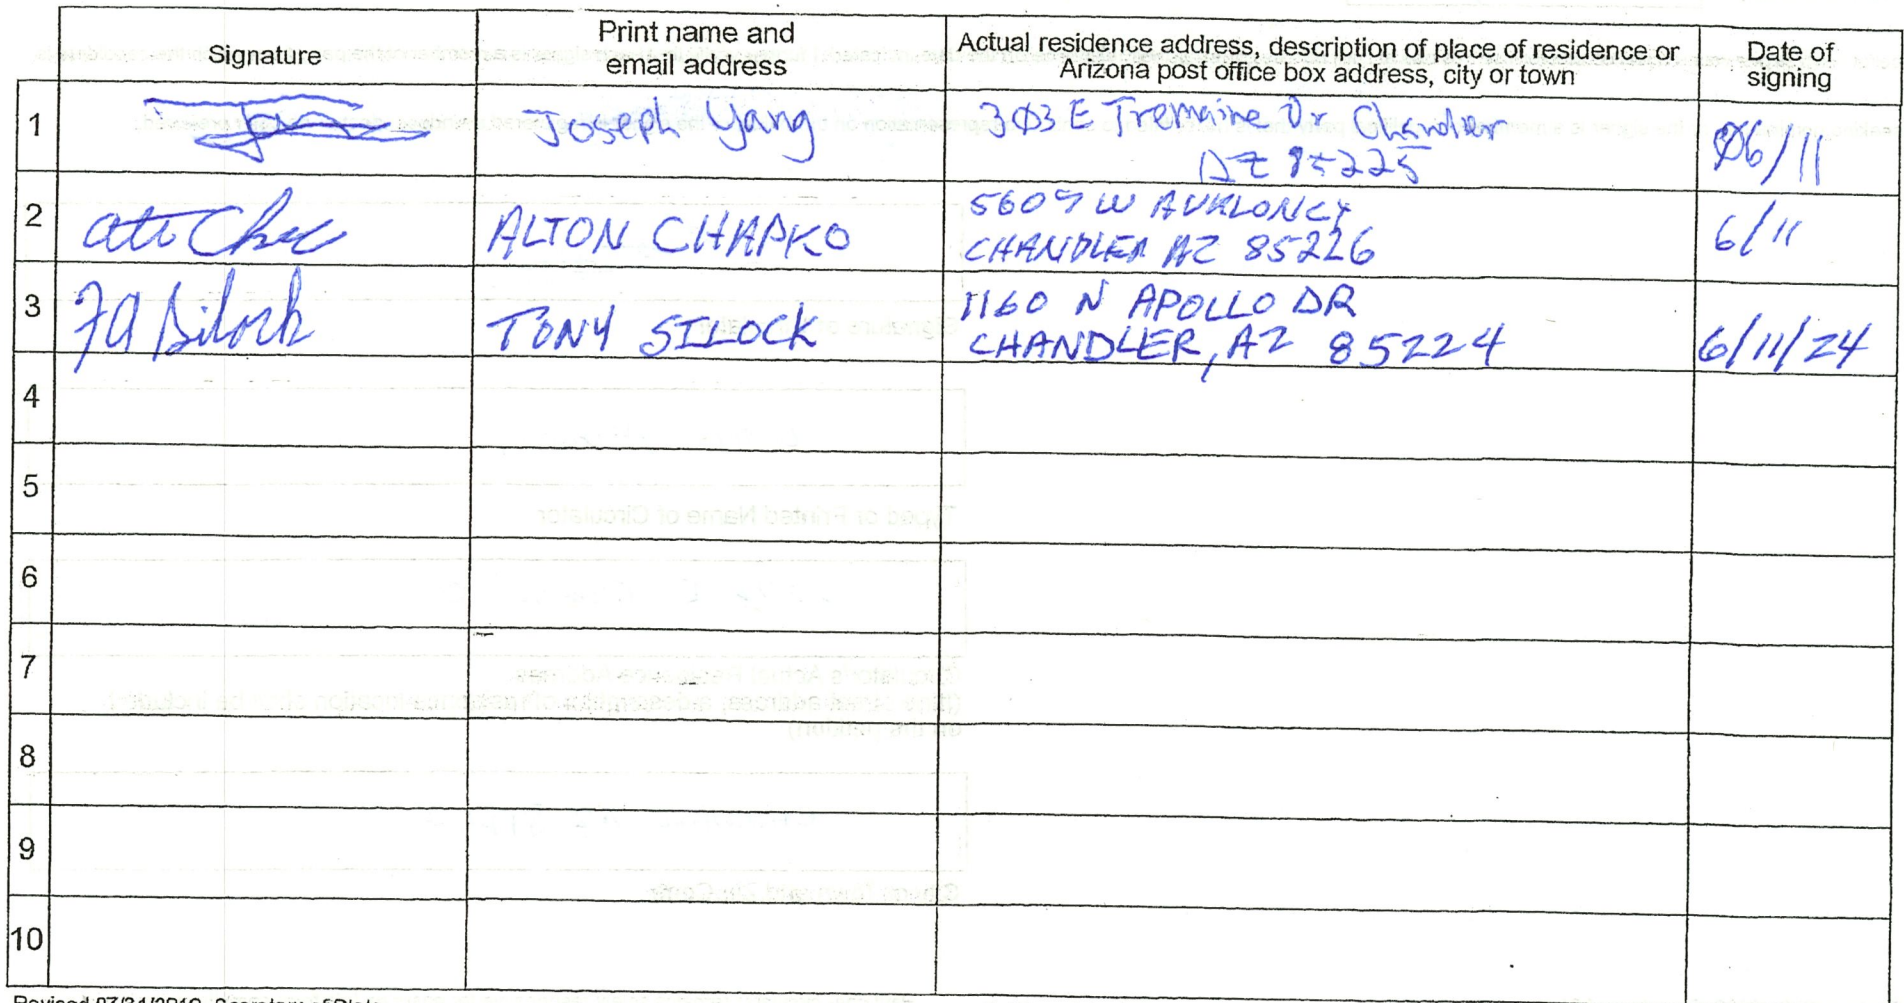 Signature
Print name and
email address
Actual residence address, description of place of residence or
Arizona post office box address, city or town
Date of
signing
1
Joseph Yang
303 E Tremaine Dr Chandler
AZ 85225
06/11
2
ALTON CHAPKO
5609 W AVALON CT
CHANDLER AZ 85226
6/11
3
TONY SILOCK
1160 N APOLLO DR
CHANDLER, AZ 85224
6/11/24
4
5
6
7
8
9
10